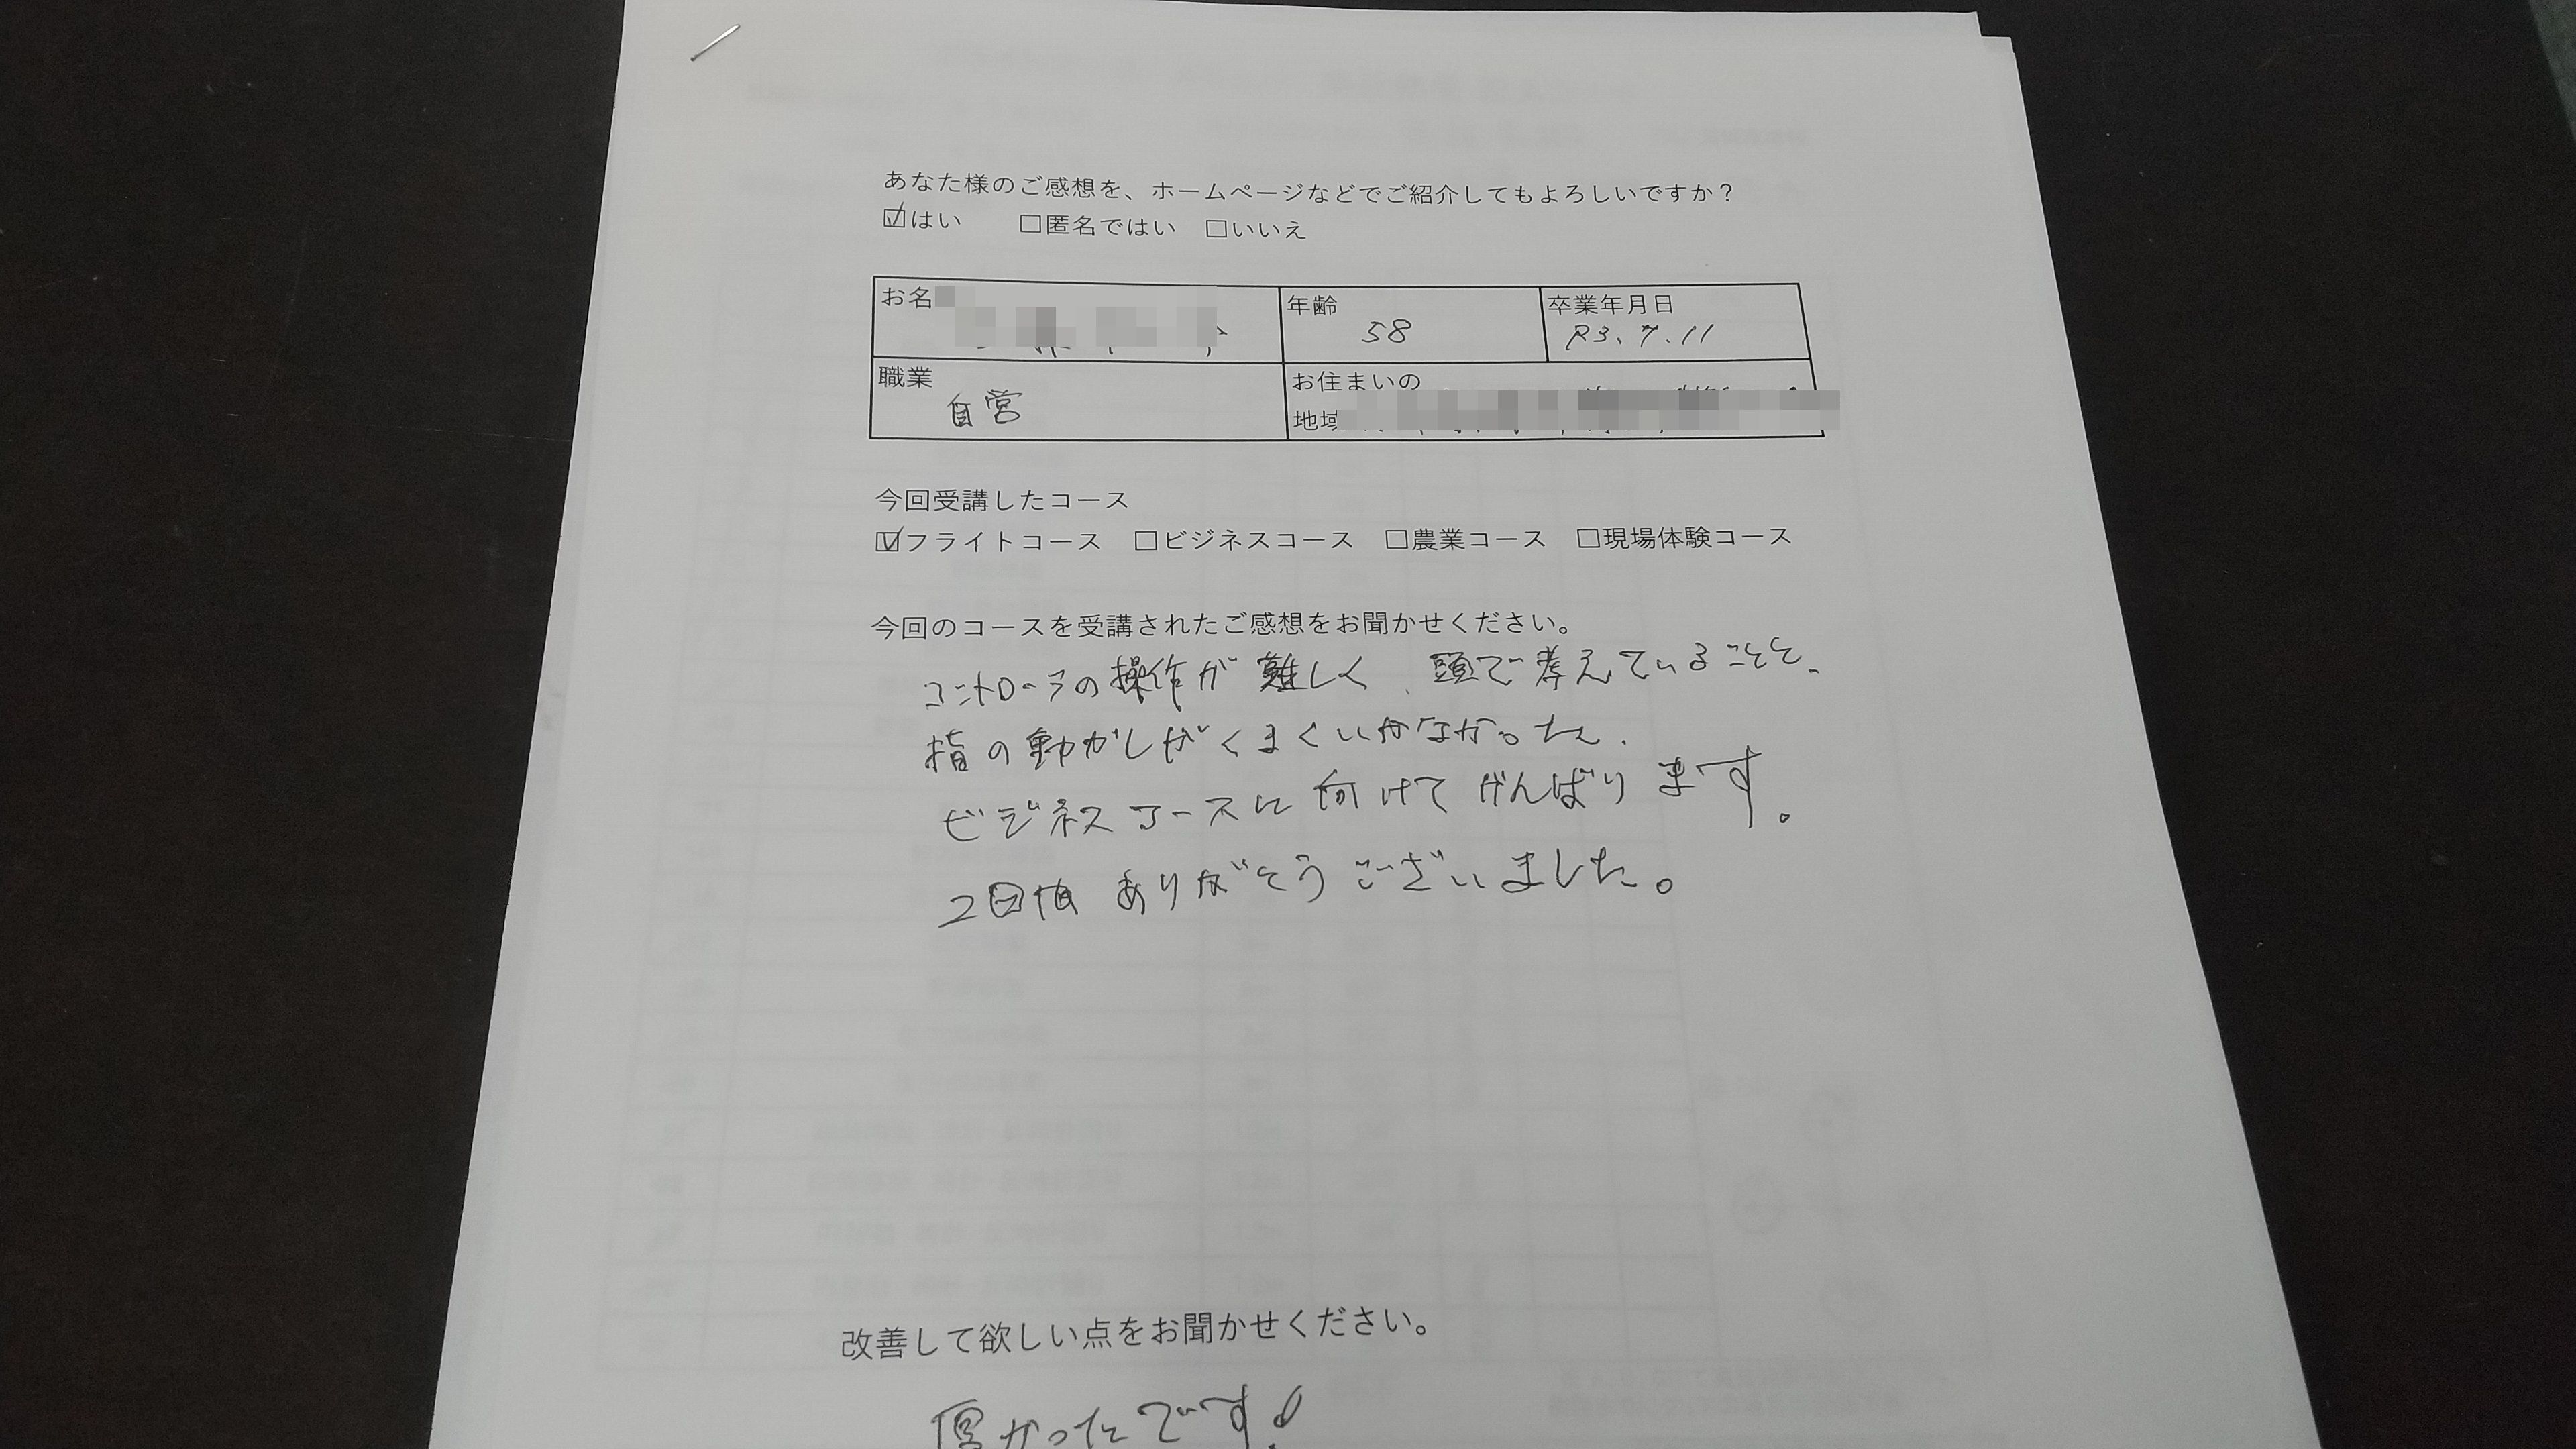 あなた様のご感想を、ホームページなどでご紹介してもよろしいですか？
☑はい　□匿名ではい　□いいえ
お名
年齢
58
卒業年月日
R3.7.11
職業
自営
お住まいの
地域
今回受講したコース
☑フライトコース　□ビジネスコース　□農業コース　□現場体験コース
今回のコースを受講されたご感想をお聞かせください。
コントローラの操作が難しく、頭で考えていることと、
指の動かしがうまくいかなかった。
ビジネスコースに向けてがんばります。
2日間ありがとうございました。
改善して欲しい点をお聞かせください。
かったです!